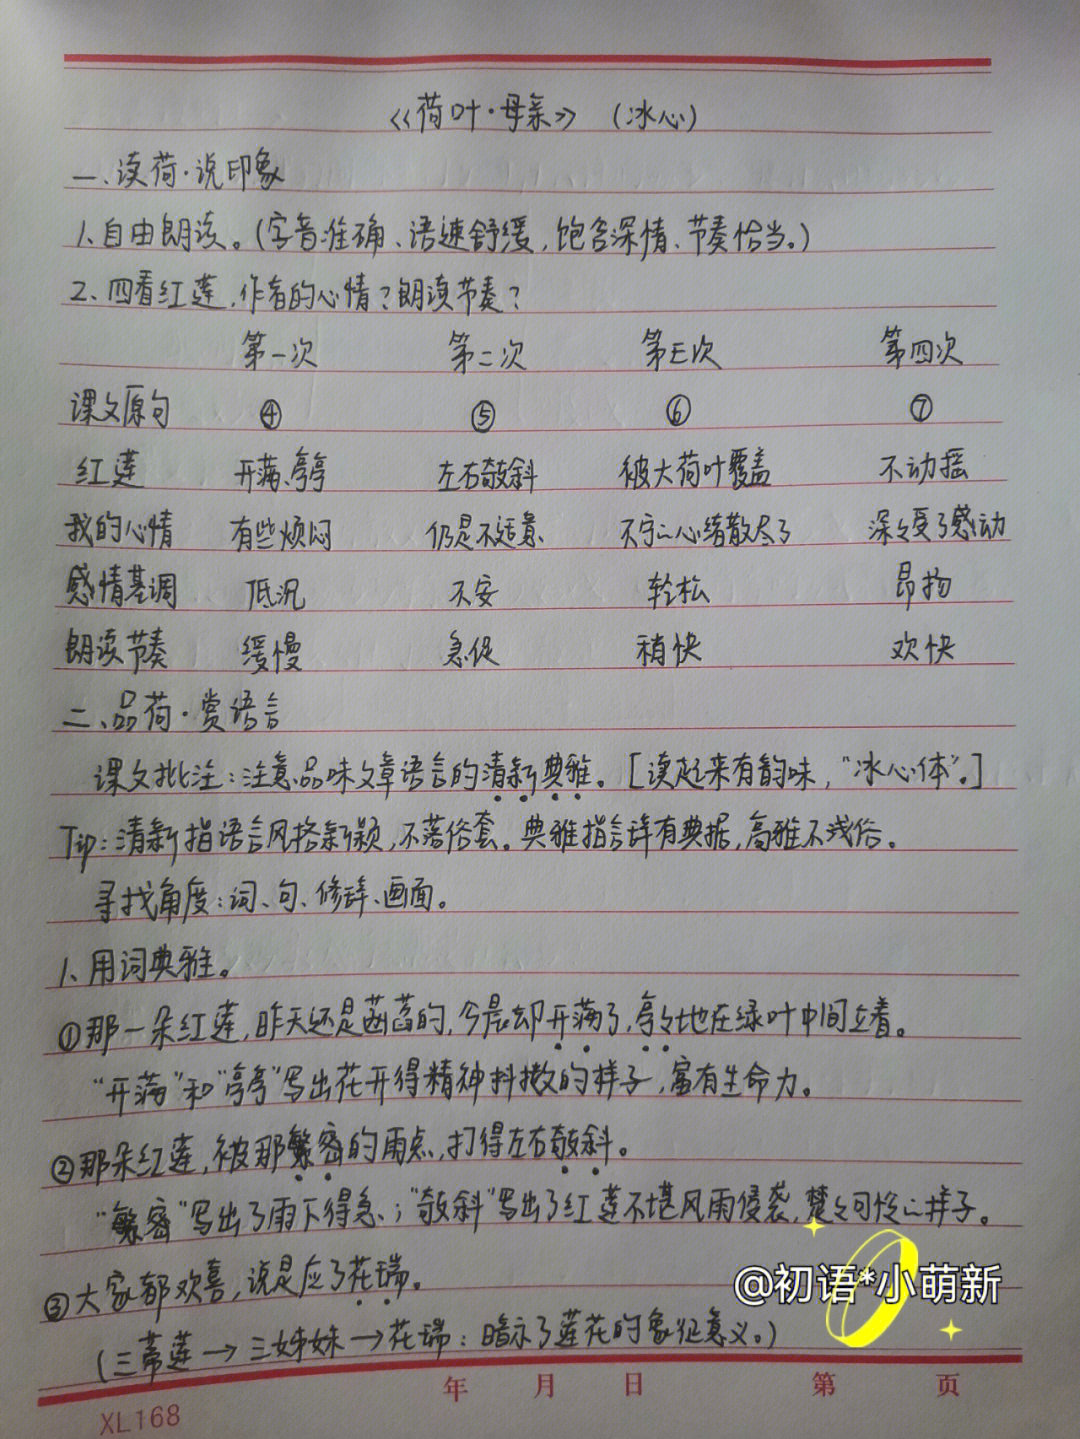 《荷叶·母亲》 (冰心)
一、读荷·说印象
1、自由朗读。(字音准确、语速舒缓,饱含深情、节奏恰当。)
2、四看红莲,作者的心情?朗读节奏?
第一次 第二次 第三次 第四次
课文原句 ④ ⑤ ⑥ ⑦
红莲 开满、亭亭 左右欹斜 被大荷叶覆盖 不动摇
我的心情 有些烦闷 仍是不适意 不宁的心绪散尽了 深深受了感动
感情基调 低沉 不安 轻松 昂扬
朗读节奏 缓慢 急促 稍快 欢快
二、品荷·赏语言
课文批注:注意品味文章语言的清新典雅。[读起来有韵味,“冰心体”。]
Tip:清新指语言风格新颖,不落俗套。典雅指言辞有典据,高雅不浅俗。
寻找角度:词、句、修辞、画面。
1、用词典雅。
①那一朵红莲,昨天还是菡萏的,今晨却开满了,亭亭地在绿叶中间立着。
“开满”和“亭亭”写出花开得精神抖擞的样子,富有生命力。
②那朵红莲,被那繁密的雨点,打得左右欹斜。
“繁密”写出了雨下得急;“欹斜”写出了红莲不堪风雨侵袭,楚楚可怜的样子。
③大家都欢喜,说是应了花瑞。
(三蒂莲→三姊妹→花瑞:暗示了莲花的象征意义。)
@初语*小萌新
年 月 日 第 页
XL168